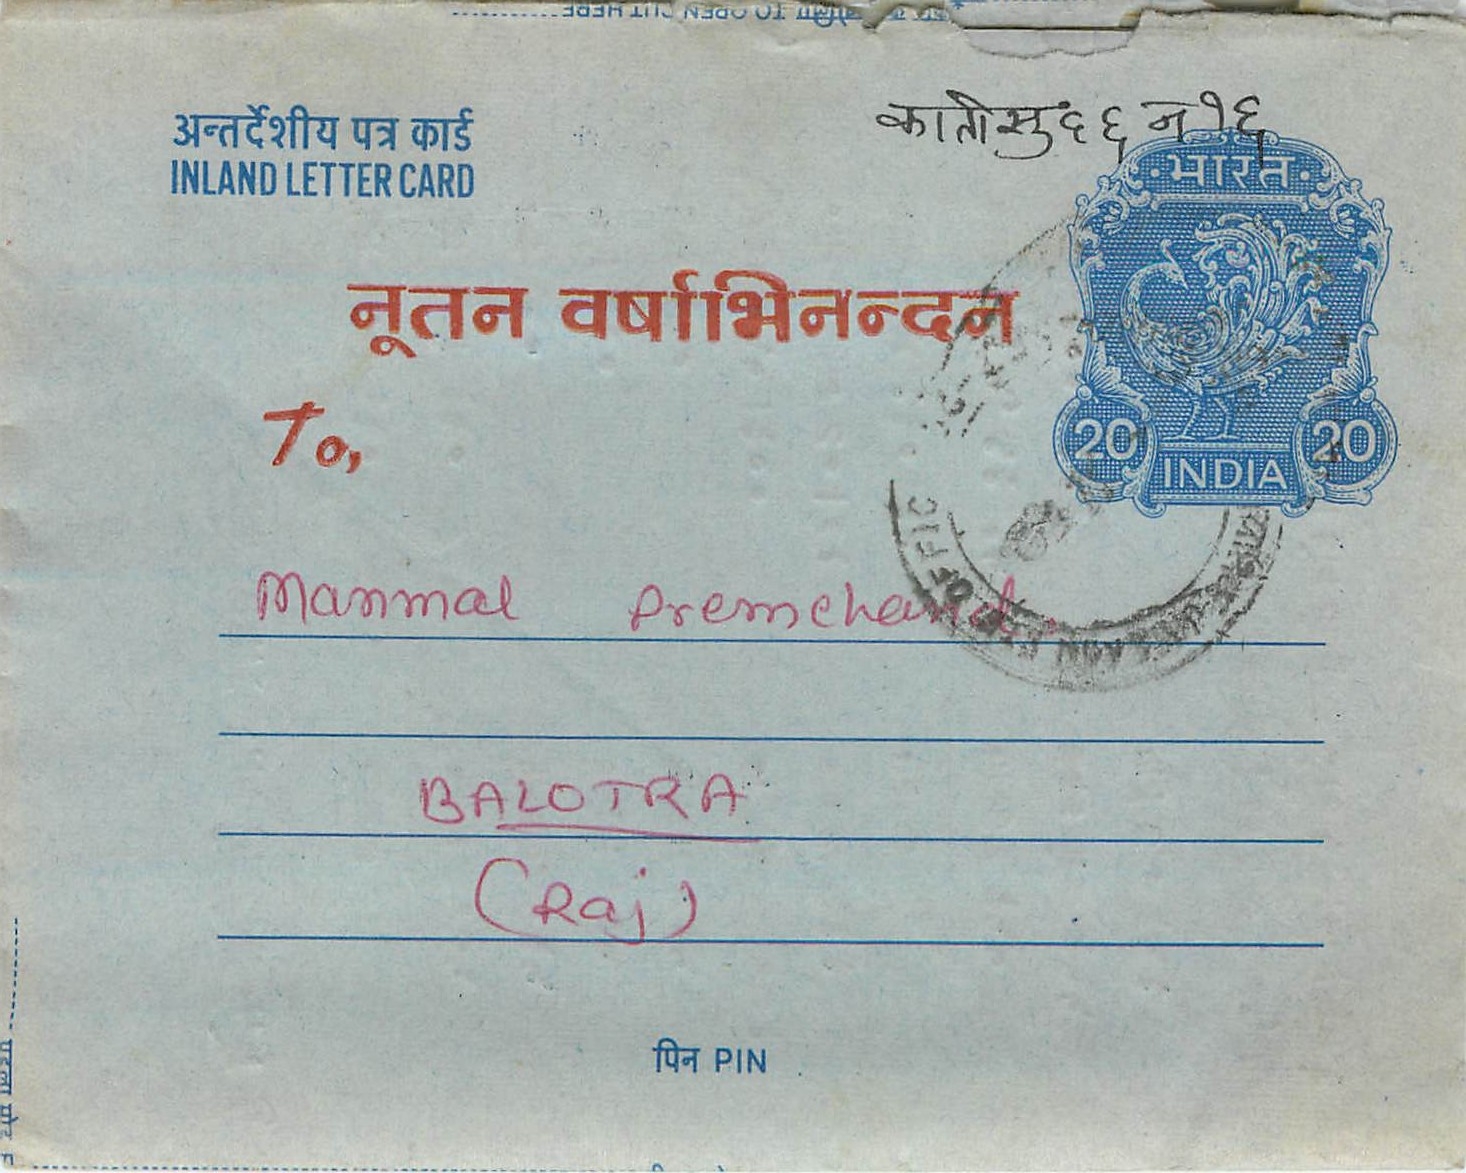 TO OPEN CUT HERE
अन्तर्देशीय पत्र कार्ड
INLAND LETTER CARD
भारत
नूतन वर्षाभिनन्दन
To,
20 20
INDIA
OFFIC
Manmal Premchand
BALOTRA
(Raj)
पिन PIN
पहला मोड़